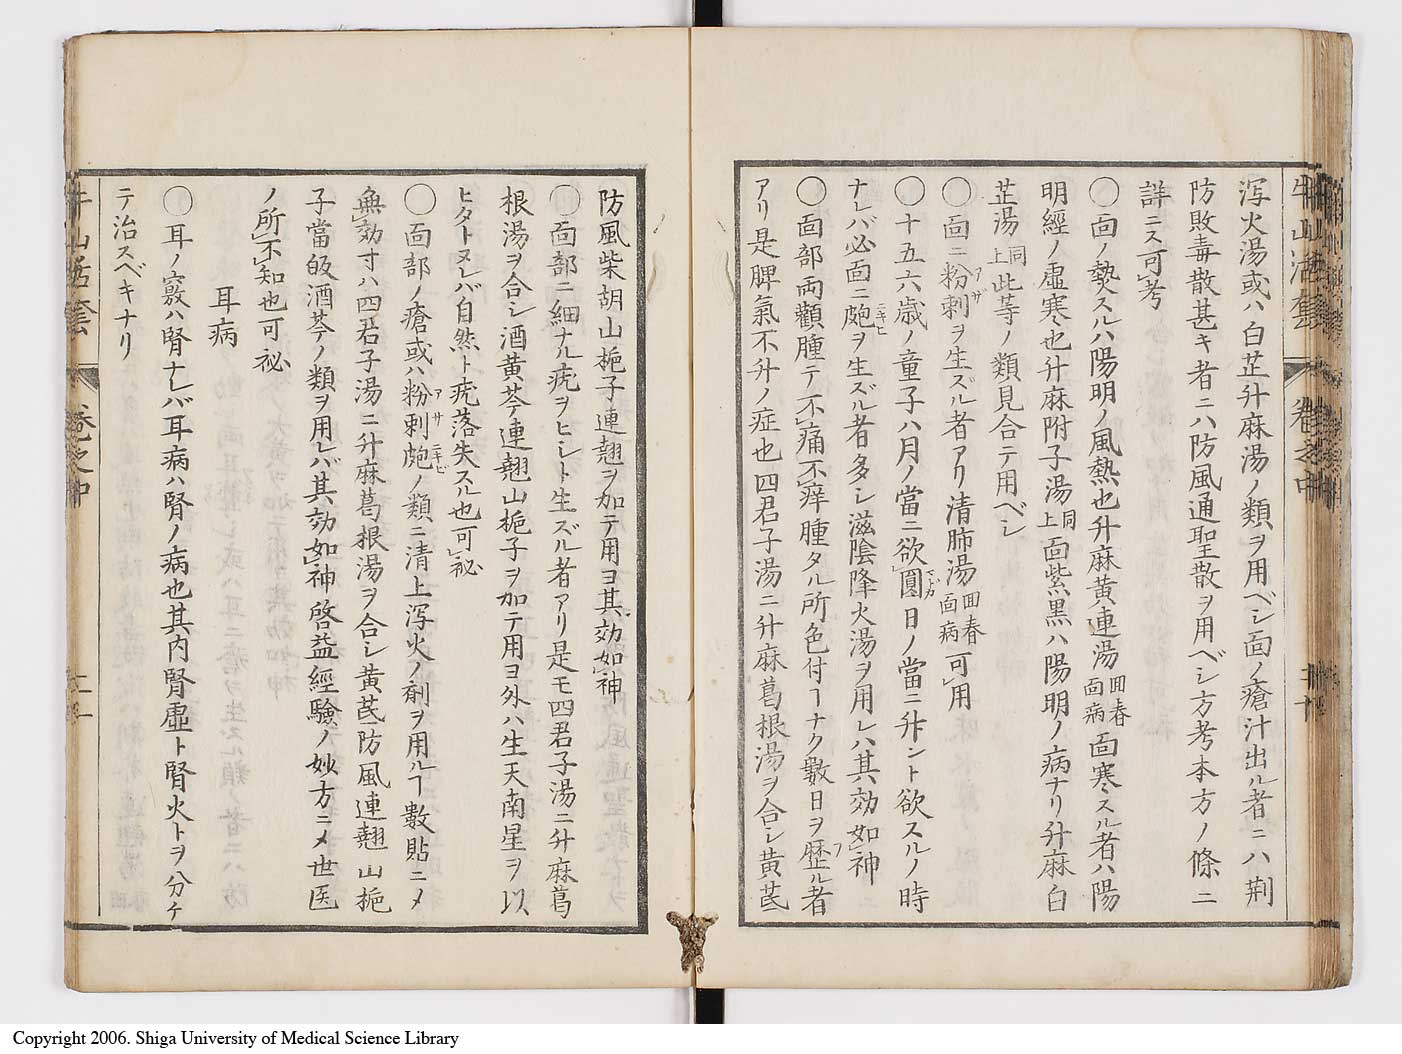 牛山活套 卷之中 三十
瀉火湯或ハ白芷升麻湯ノ類ヲ用ベシ面ノ瘡汁出ル者ニハ荊
防敗毒散甚キ者ニハ防風通聖散ヲ用ベシ方考本方ノ條ニ
詳ニス可考
○面ノ熱スルハ陽明ノ風熱也升麻黄連湯回春面病面寒スル者ハ陽
明經ノ虚寒也升麻附子湯同上面紫黒ハ陽明ノ病ナリ升麻白
芷湯同上此等ノ類見合テ用ベシ
○面ニ粉刺ヲ生ズル者アリ清肺湯回春面病可用
○十五六歳ノ童子八月ノ當ニ欲圓日ノ當ニ升ント欲スルノ時
ナレバ必面ニ皰ヲ生ズル者多シ滋陰降火湯ヲ用レハ其効如神
○面部両顴腫テ不痛不痒腫タル所色付ヿナク數日ヲ歴ル者
アリ是脾氣不升ノ症也四君子湯ニ升麻葛根湯ヲ合シ黄芪
防風柴胡山梔子連翹ヲ加テ用ヨ其効如神
○面部ニ細ナル疣ヲヒシト生ズル者アリ是モ四君子湯ニ升麻葛
根湯ヲ合シ酒黄芩連翹山梔子ヲ加テ用ヨ外ハ生天南星ヲ以
ヒタトヌレバ自然ト疣落失スル也可秘
○面部ノ瘡或ハ粉刺皰ノ類ニ清上瀉火ノ剤ヲ用ルヿ數貼ニメ
無効寸ハ四君子湯ニ升麻葛根湯ヲ合シ黄芪防風連翹山梔
子當皈酒芩ノ類ヲ用レバ其効如神啓益經驗ノ妙方ニメ世医
ノ所不知也可秘
耳病
○耳ノ竅ハ腎ナレバ耳病ハ腎ノ病也其内腎虚ト腎火トヲ分チ
テ治スベキナリ
牛山活套 卷之中